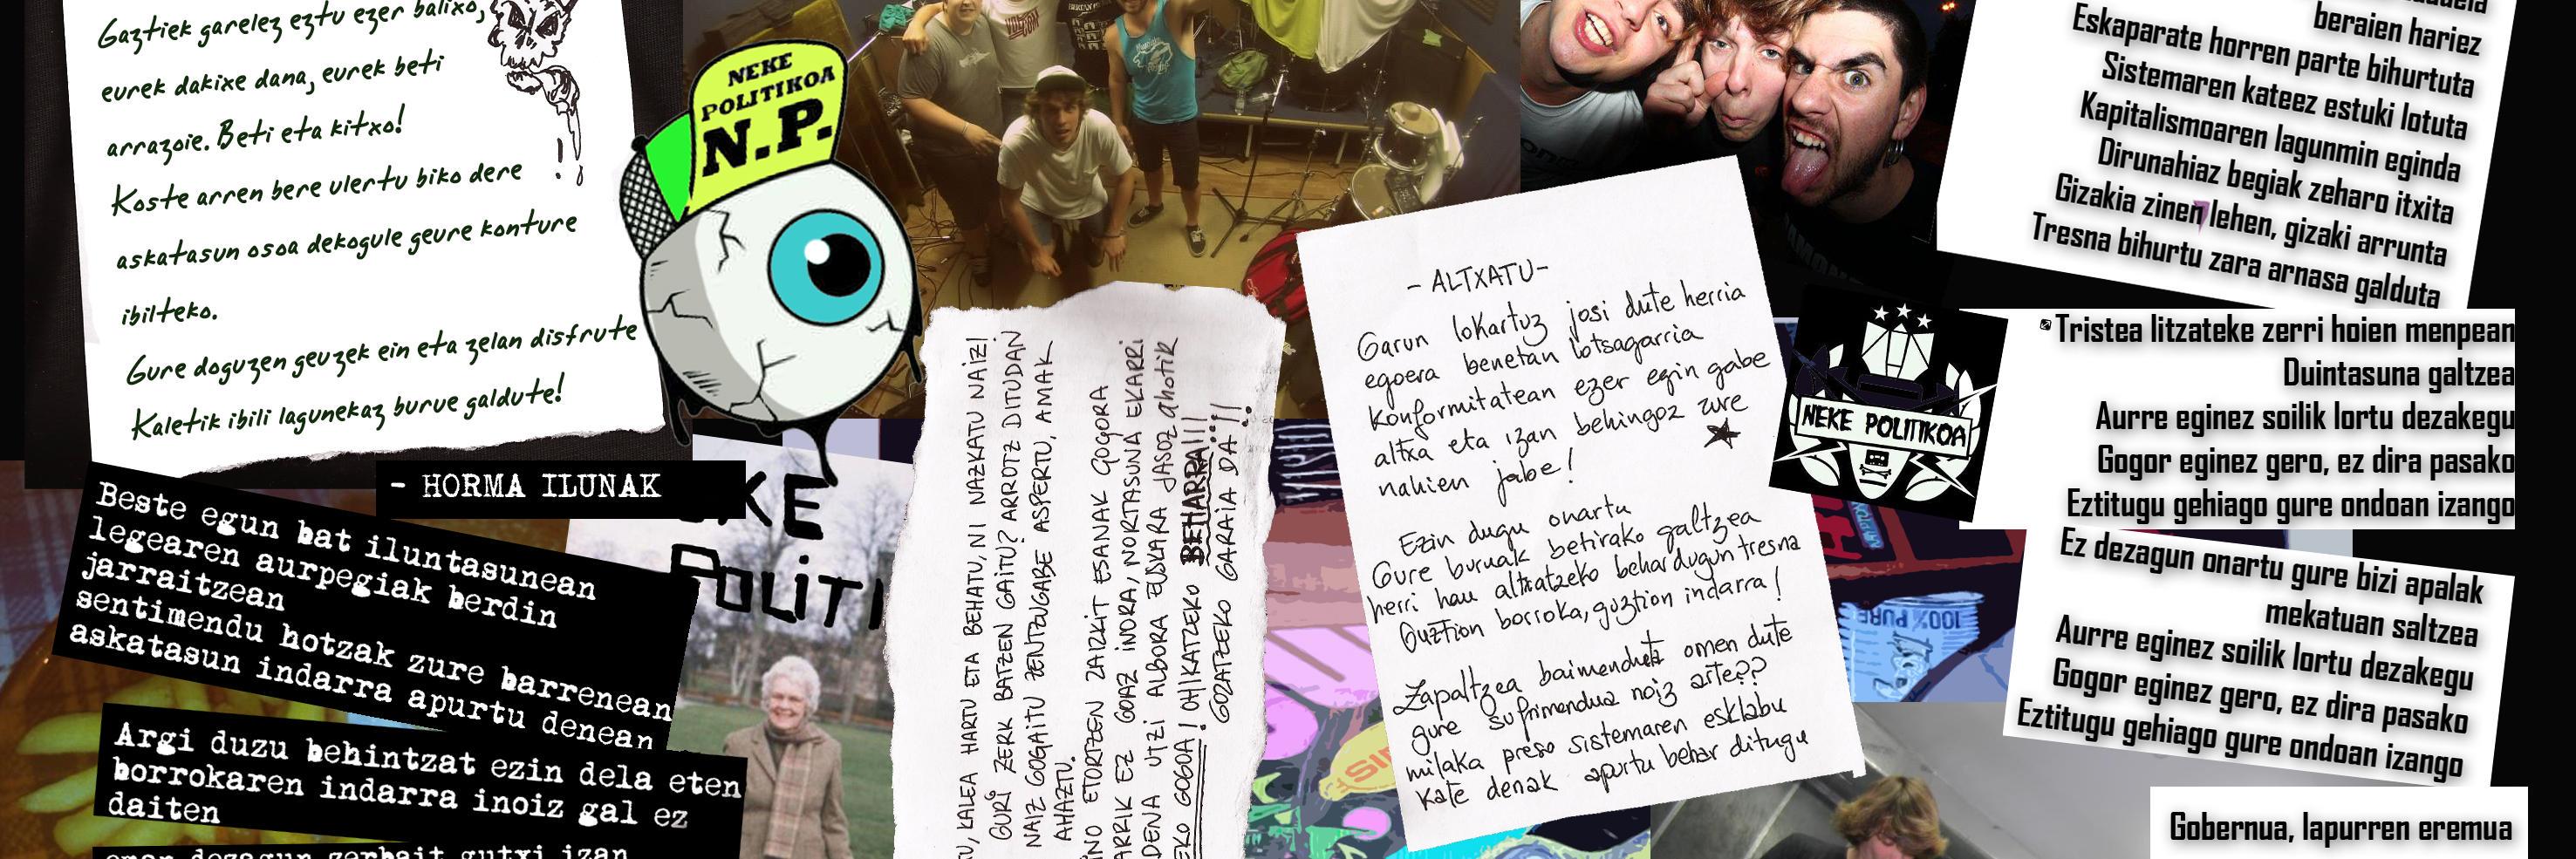 Gaztiek garelez eztu ezer balixo,
eurek dakixe dana, eurek beti
arrazoie. Beti eta kitxo!
Koste arren bere ulertu biko dere
askatasun osoa dekogule geure konture
ibilteko.
Gure doguzen geuzek ein eta zelan disfrute
Kaletik ibili lagunekaz burue galdute!
NEKE
POLITIKOA
N.P.
- HORMA ILUNAK
Beste egun bat iluntasunean
legearen aurpegiak berdin
jarraitzean
sentimendu hotzak zure barrenean
askatasun indarra apurtu denean
Argi duzu behintzat ezin dela eten
borrokaren indarra inoiz gal ez
daiten
eman dezagun zerbait gutxi izan
KE
POLITI
KALEA HARTU ETA BEHATU, NI NAZKATU NAIZ!
GURI ZERK BATZEN GAITU? ARROTZ DITUDAN
NAIZ GOGAITU ZENTZUGABE ASPERTU, AMAK
AHAZTU.
ETORTZEN ZAIZKIT ESANAK GOGORA
EZ GOAZ INORA, NORTASUNA EKARRI
UTZI ALBORA EUSKARA JASOZ ahotik
GOGOA! OIHIKATZEKO BEHARRA!!!
GOZATZEKO GARAIA DA!!
- ALTXATU -
Garun lokartuz josi dute herria
egoera benetan lotsagarria
Konformitatean ezer egin gabe
altxa eta izan behingoz zure
nahien jabe!
Ezin dugu onartu
Gure buruak betirako galtzea
herri hau altxatzeko behar dugun tresna
Guztion borroka, guztion indarra!
Zapaltzea baimenduta omen dute
gure sufrimendua noiz arte??
milaka preso sistemaren esklabu
Kate denak apurtu behar ditugu
beraien hariez
Eskaparate horren parte bihurtuta
Sistemaren kateez estuki lotuta
Kapitalismoaren lagunmin eginda
Dirunahiaz begiak zeharo itxita
Gizakia zinen lehen, gizaki arrunta
Tresna bihurtu zara arnasa galduta
NEKE POLITIKOA
Tristea litzateke zerri hoien menpean
Duintasuna galtzea
Aurre eginez soilik lortu dezakegu
Gogor eginez gero, ez dira pasako
Eztitugu gehiago gure ondoan izango
Ez dezagun onartu gure bizi apalak
mekatuan saltzea
Aurre eginez soilik lortu dezakegu
Gogor eginez gero, ez dira pasako
Eztitugu gehiago gure ondoan izango
100% PURE
Gobernua, lapurren eremua